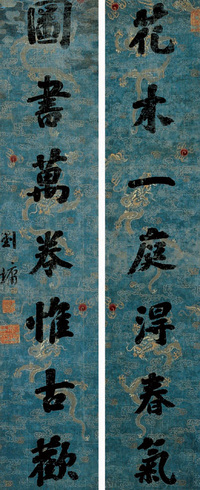 花木一庭淂春氣
圖書萬卷惟古歡
劉墉